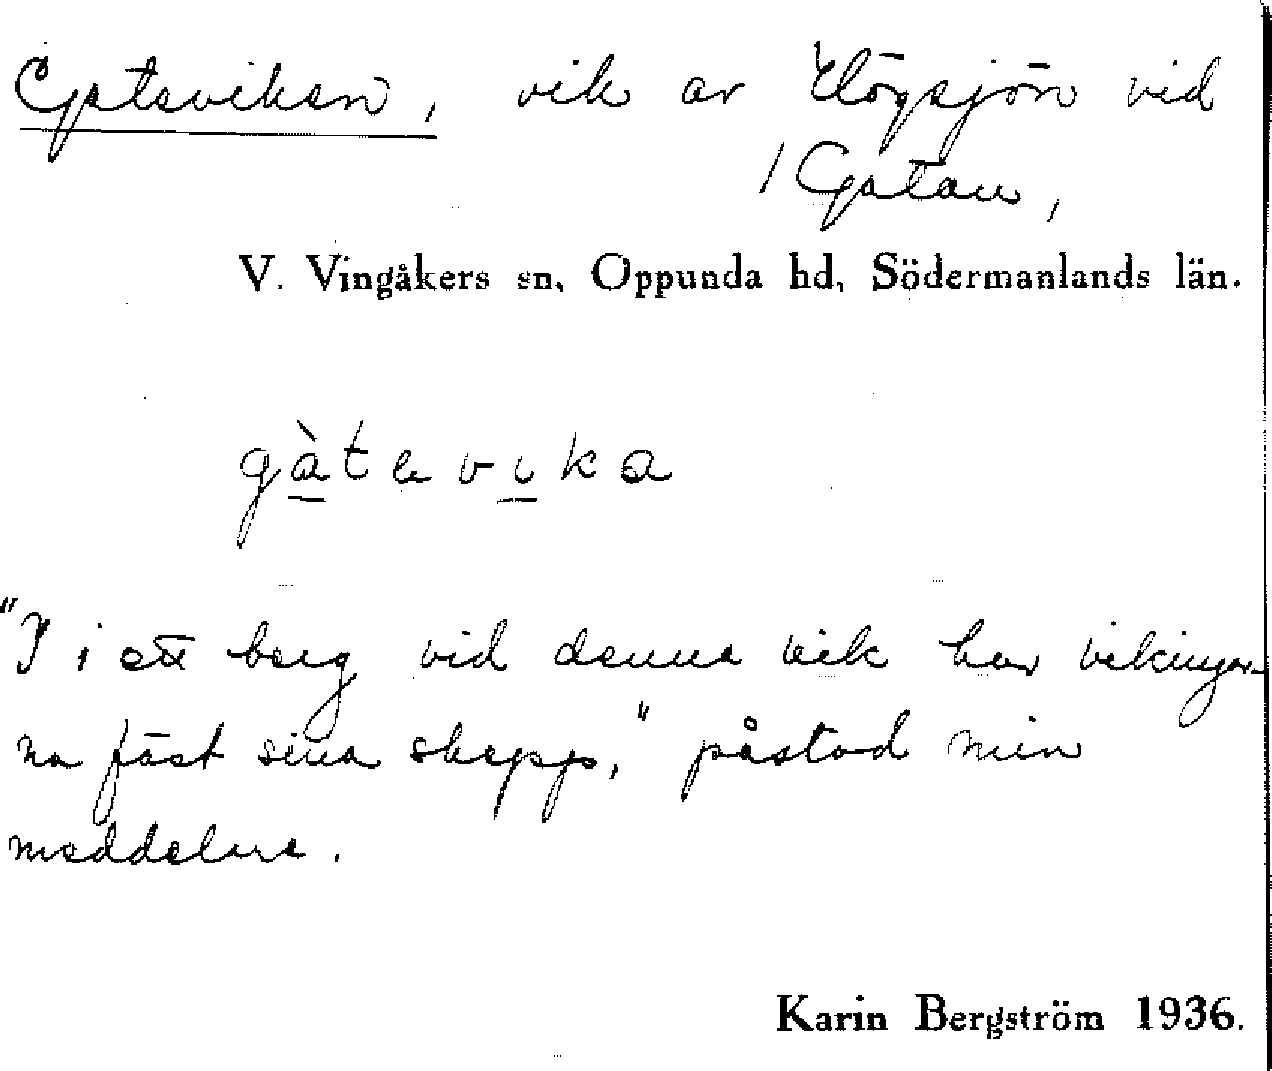 Gataviken, vik av Högsjön vid
/ Gatan,
V. Vingåkers sn, Oppunda hd, Södermanlands län.
gàtavika
"I i ett berg vid denna vik har vikingar-
na fäst sina skepp," påstod min
meddelare.
Karin Bergström 1936.